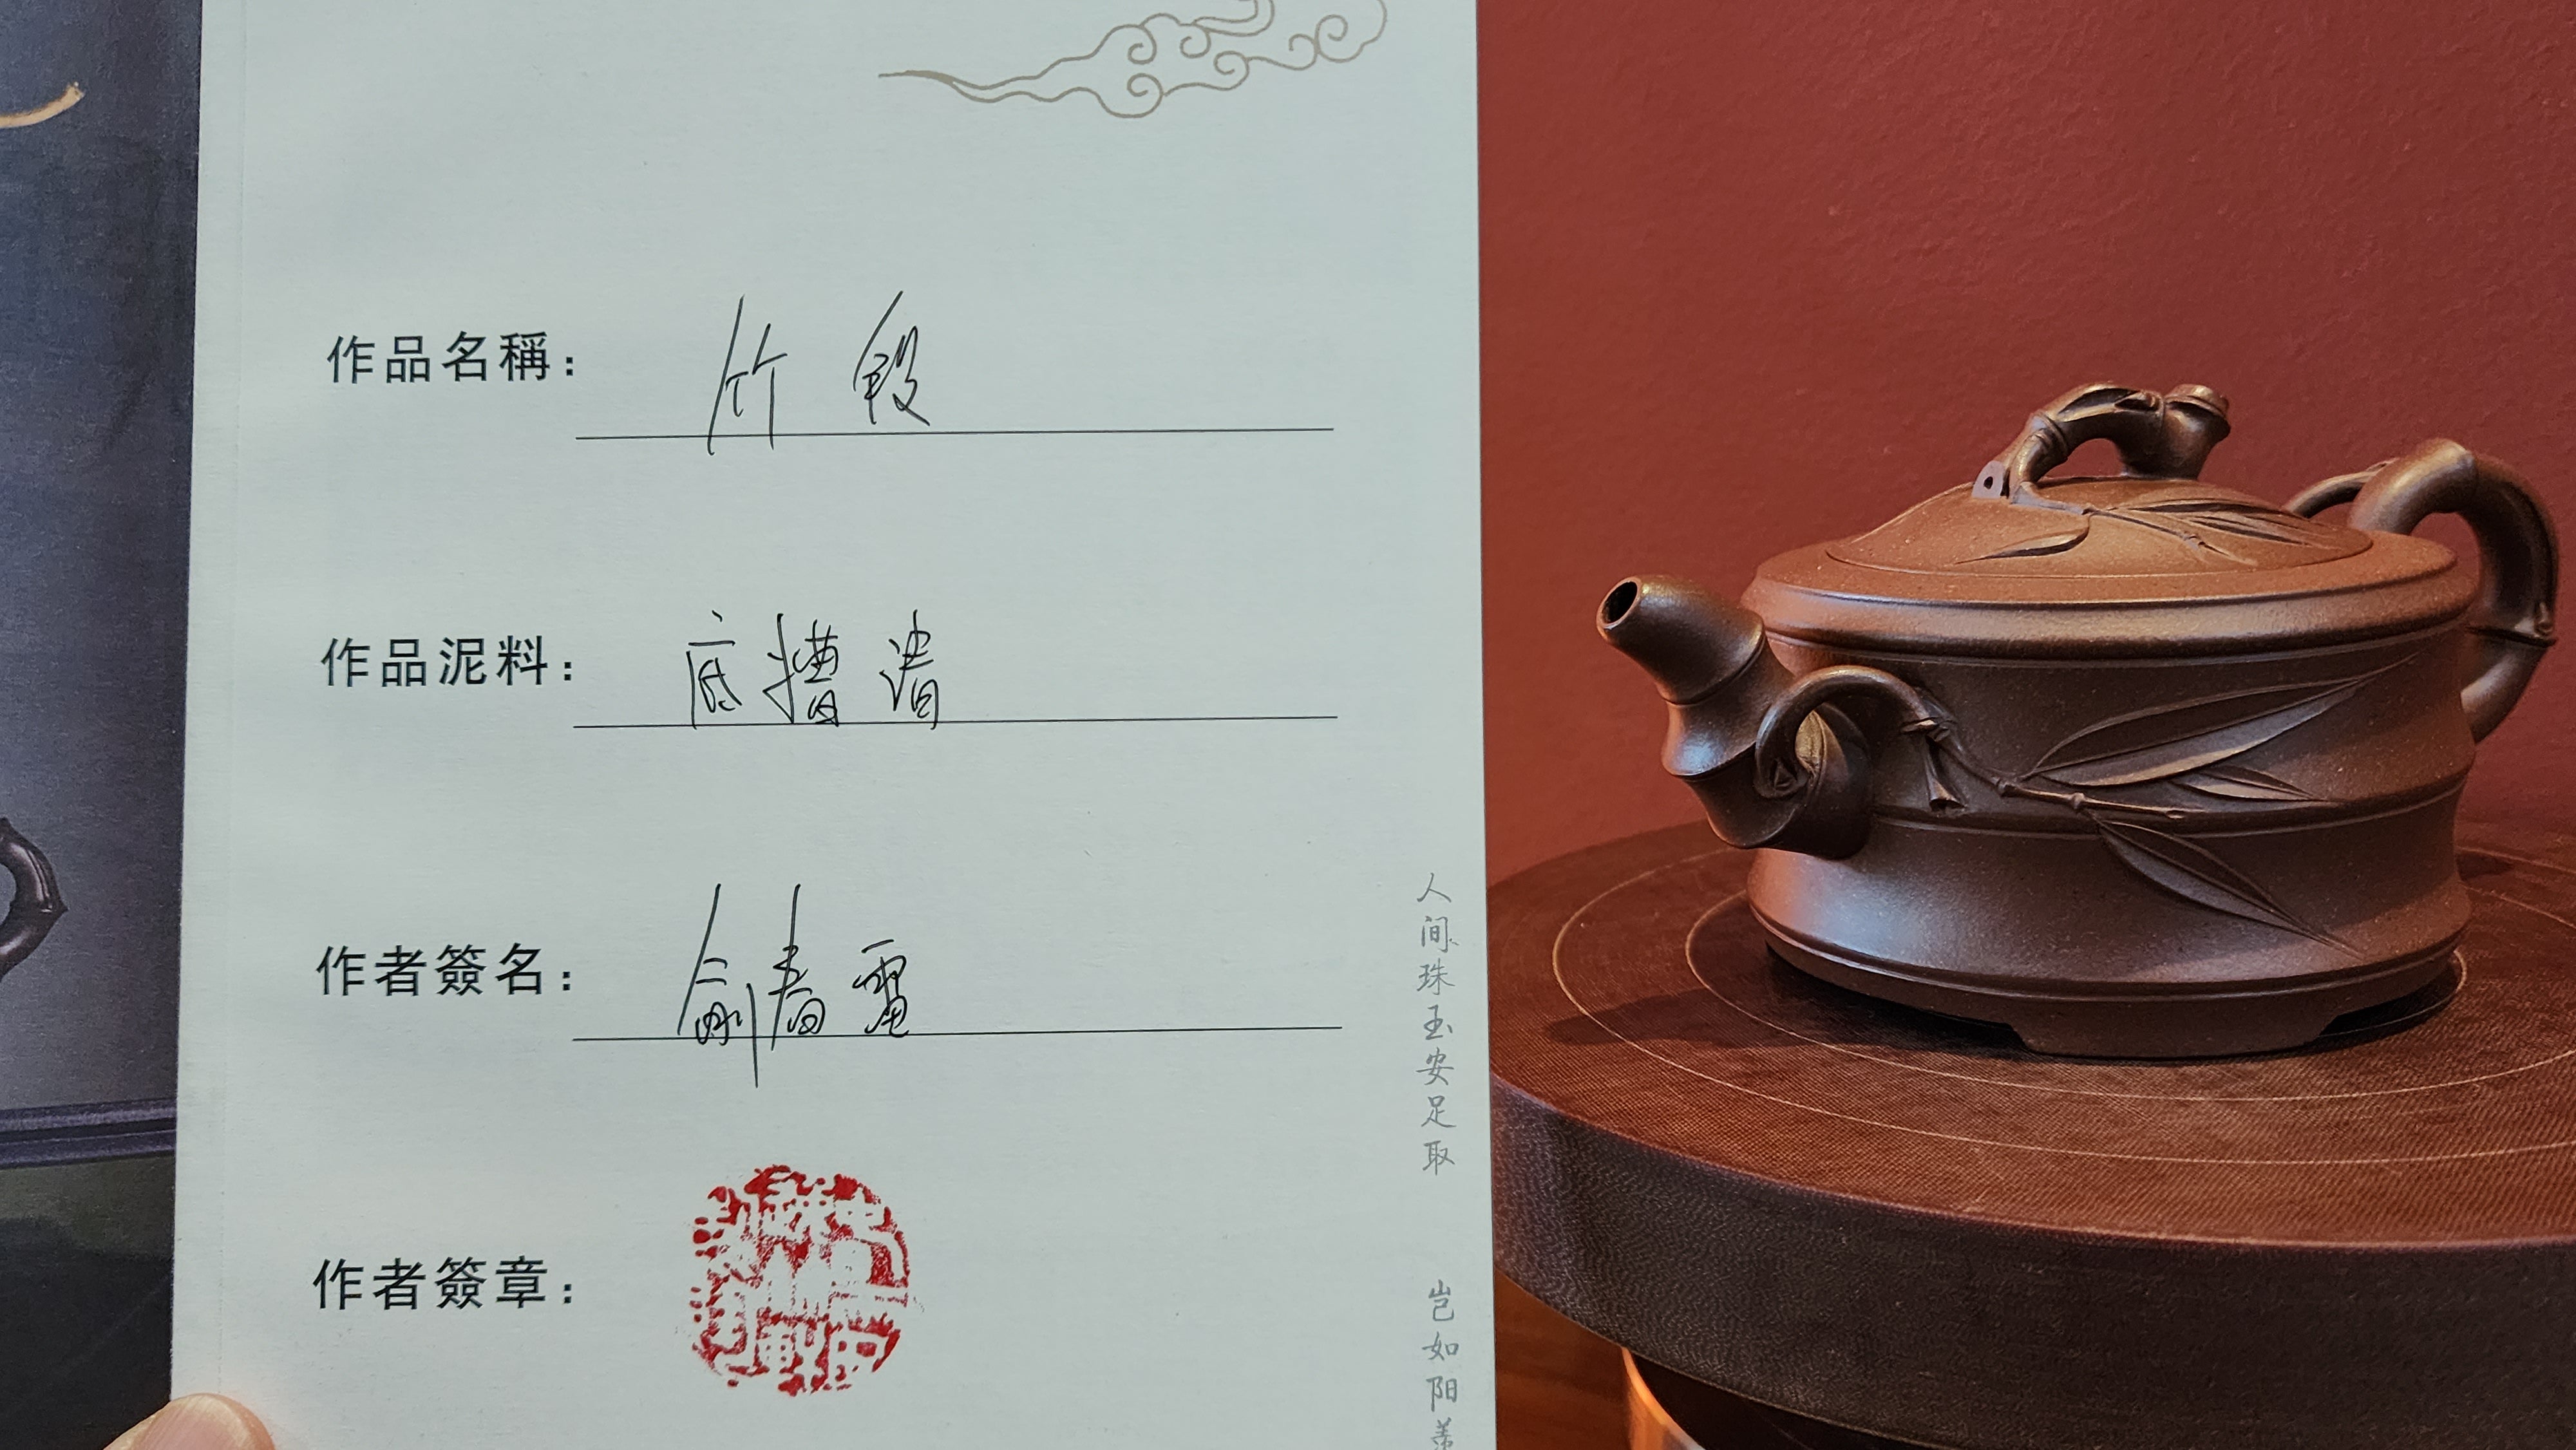 作品名稱： 竹段
作品泥料： 底槽清
作者簽名： 俞春雷
作者簽章：
人间珠玉安足取
岂如阳羡